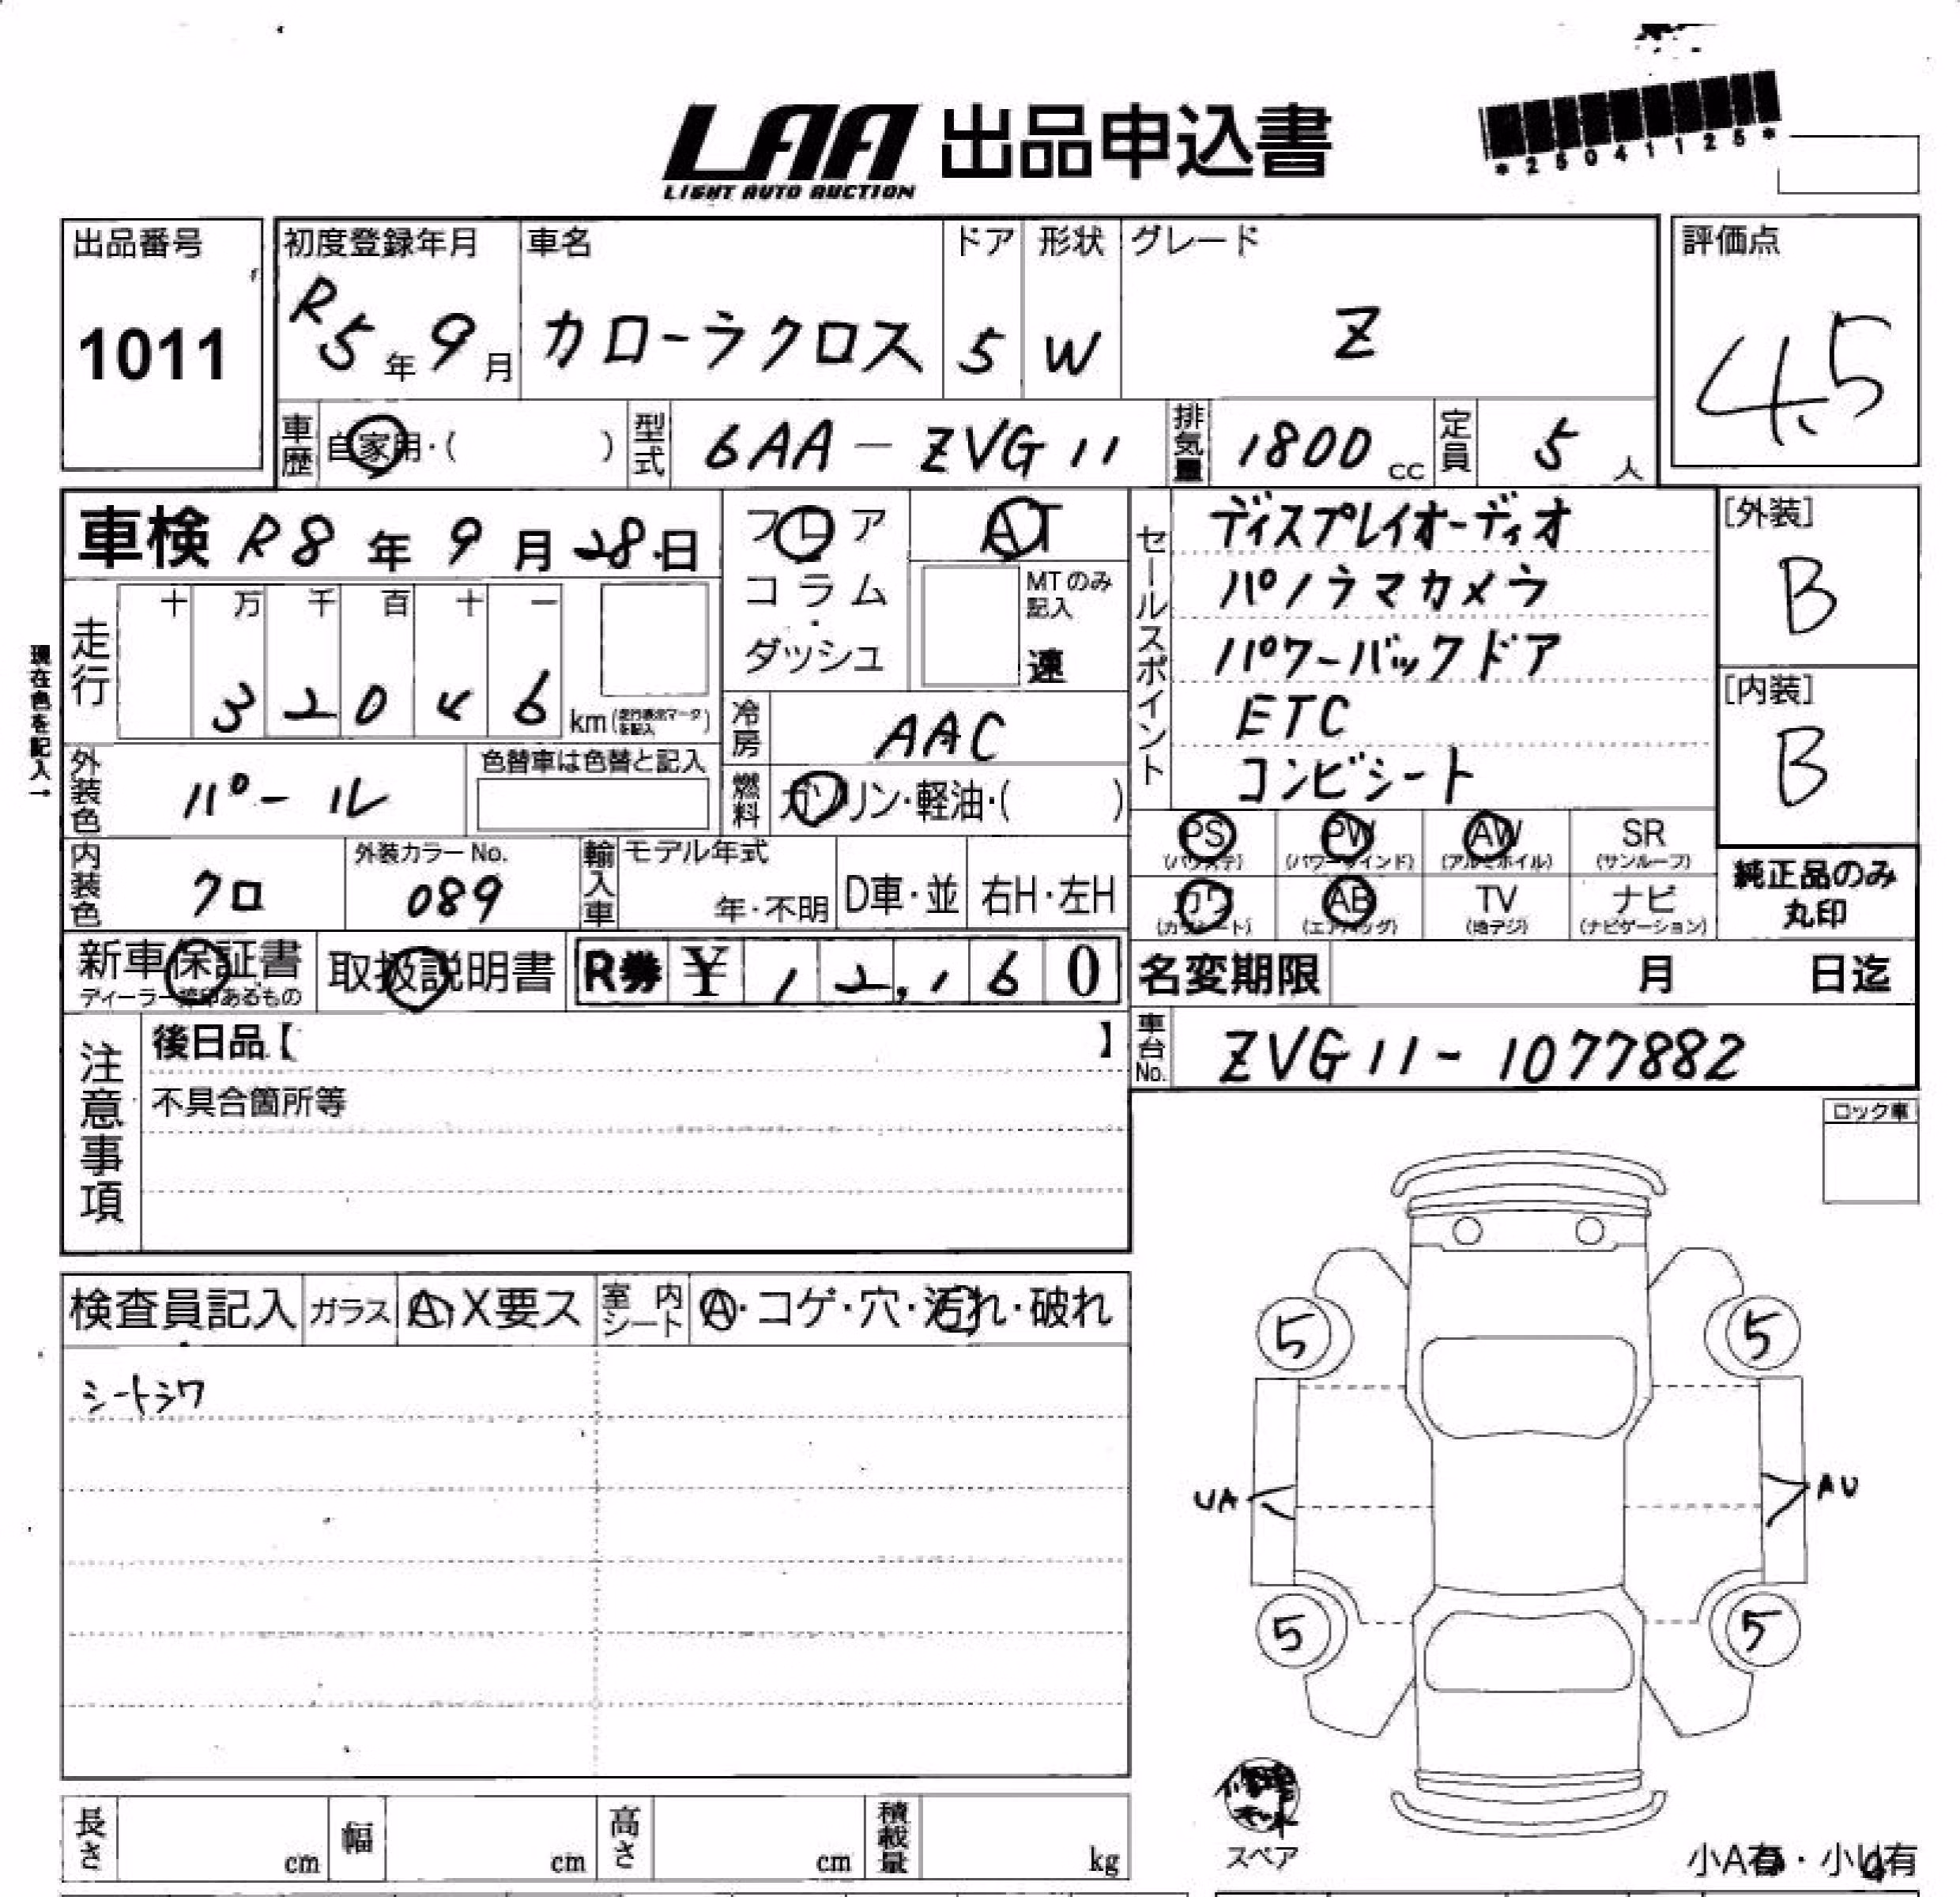 LAA 出品申込書
LIGHT AUTO AUCTION
*25041125*
出品番号
1011
初度登録年月
R5年9月
車名
カローラクロス
ドア
5
形状
W
グレード
Z
評価点
4.5
車歴 自家用・( )
型式 6AA-ZVG11
排気量 1800 cc
定員 5人
現在色を記入→
車検 R8年9月28日
走行
十 万 千 百 十 一
3 2 0 4 6 km (走行表示マークを記入)
フロア
コラム
ダッシュ
AT
MTのみ記入
速
冷房 AAC
燃料 ガソリン・軽油・( )
セールスポイント
ディスプレイオーディオ
パノラマカメラ
パワーバックドア
ETC
コンビシート
[外装]
B
[内装]
B
外装色 パール
色替車は色替と記入
内装色 クロ
外装カラーNo.
089
輸入車
モデル年式
年・不明
D車・並
右H・左H
PS (パワステ)
PW (パワーウインド)
AW (アルミホイル)
SR (サンルーフ)
カワ (カワシート)
AB (エアバッグ)
TV (地デジ)
ナビ (ナビゲーション)
純正品のみ
丸印
新車保証書
ディーラー捺印あるもの
取扱説明書
R券 ¥12,160
名変期限 月 日迄
車台No. ZVG11-1077882
注意事項
後日品【 】
不具合箇所等
ロック車
検査員記入
ガラス A・X要ス
室内シート A・コゲ・穴・汚れ・破れ
シートシワ
5 5
UA AU
5 5
スペア
長さ cm
幅 cm
高さ cm
積載量 kg
小A有・小U有